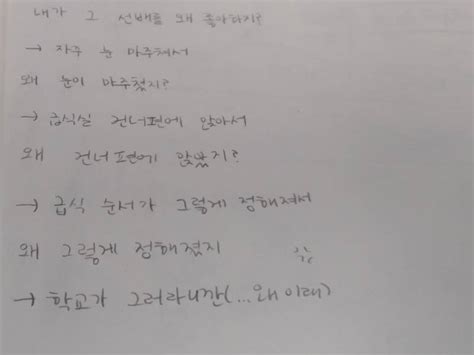 내가 그 선배를 왜 좋아하지?
→ 자주 눈 마주쳐서
왜 눈이 마주쳤지?
→ 급식실 건너편에 앉아서
왜 건너편에 앉았지?
→ 급식 순서가 그렇게 정해져서
왜 그렇게 정해졌지
→ 학교가 그러라니깐(...왜 이래)